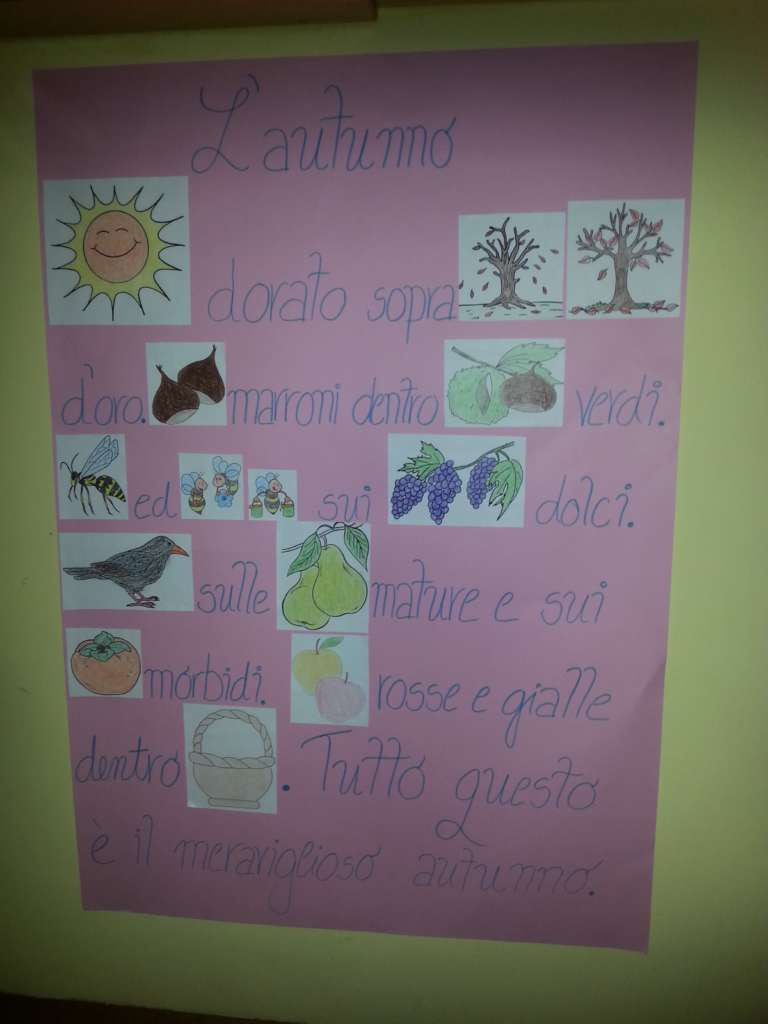 L'autunno
dorato sopra
d'oro. marroni dentro verdi.
ed sui dolci.
sulle mature e sui
morbidi. rosse e gialle
dentro . Tutto questo
è il meraviglioso autunno.